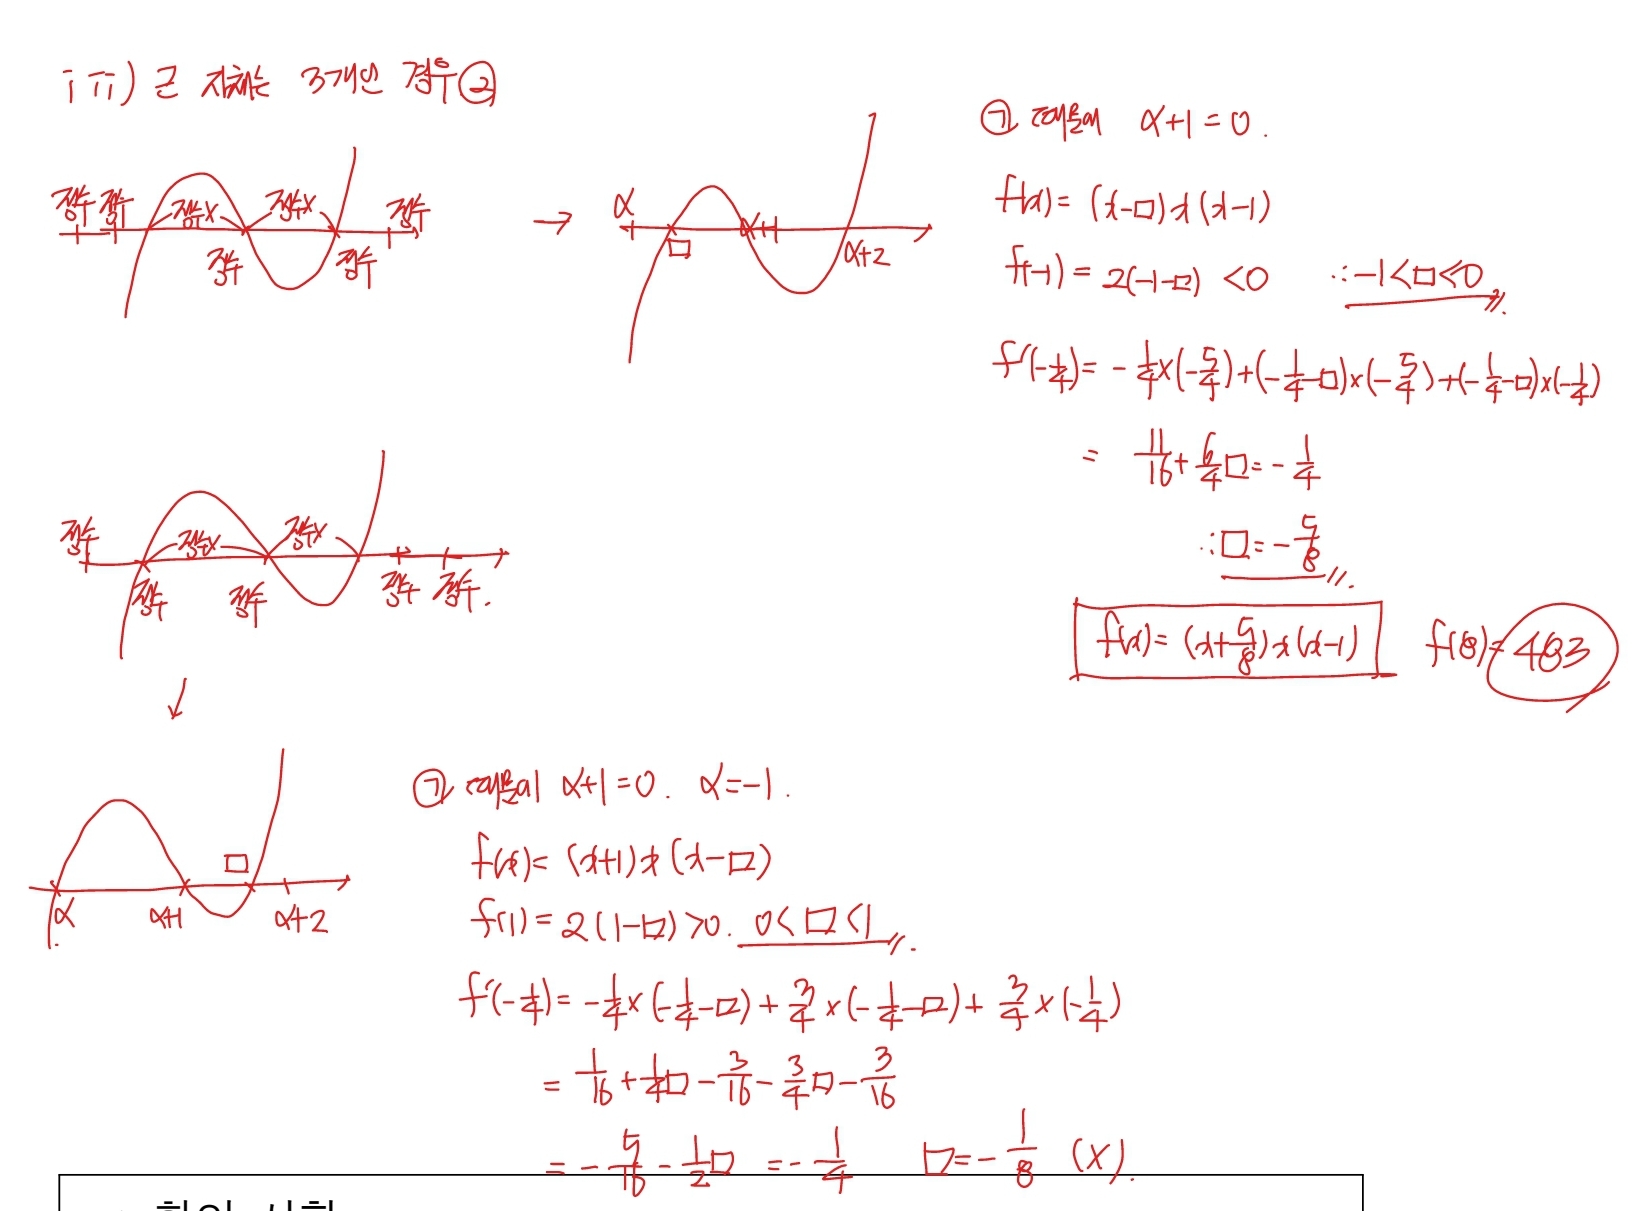 iii) 근 자체는 3개인 경우②
정수 정수 정수X 정수X 정수
정수 정수
→ α □ α+1 α+2
㉠ 때문에 α+1=0.
f(x)=(x-□)x(x-1)
f(-1)=2(-1-□)<0 ∴-1<□<0
f'(-1/4)=-1/4×(-5/4)+(-1/4-□)×(-5/4)+(-1/4-□)×(-1/4)
= 11/16+6/4□=-1/4
∴□=-5/8
f(x)=(x+5/8)x(x-1) f(8)=483
정수 정수X 정수X
정수 정수 정수 정수.
↓
□
α α+1 α+2
㉠ 때문에 α+1=0. α=-1.
f(x)=(x+1)x(x-□)
f(1)=2(1-□)>0. 0<□<1
f'(-1/4)=-1/4×(-1/4-□)+3/4×(-1/4-□)+3/4×(-1/4)
= 1/16+1/4□-3/16-3/4□-3/16
=-5/16-1/2□=-1/4 □=-1/8 (X).
확인 사항